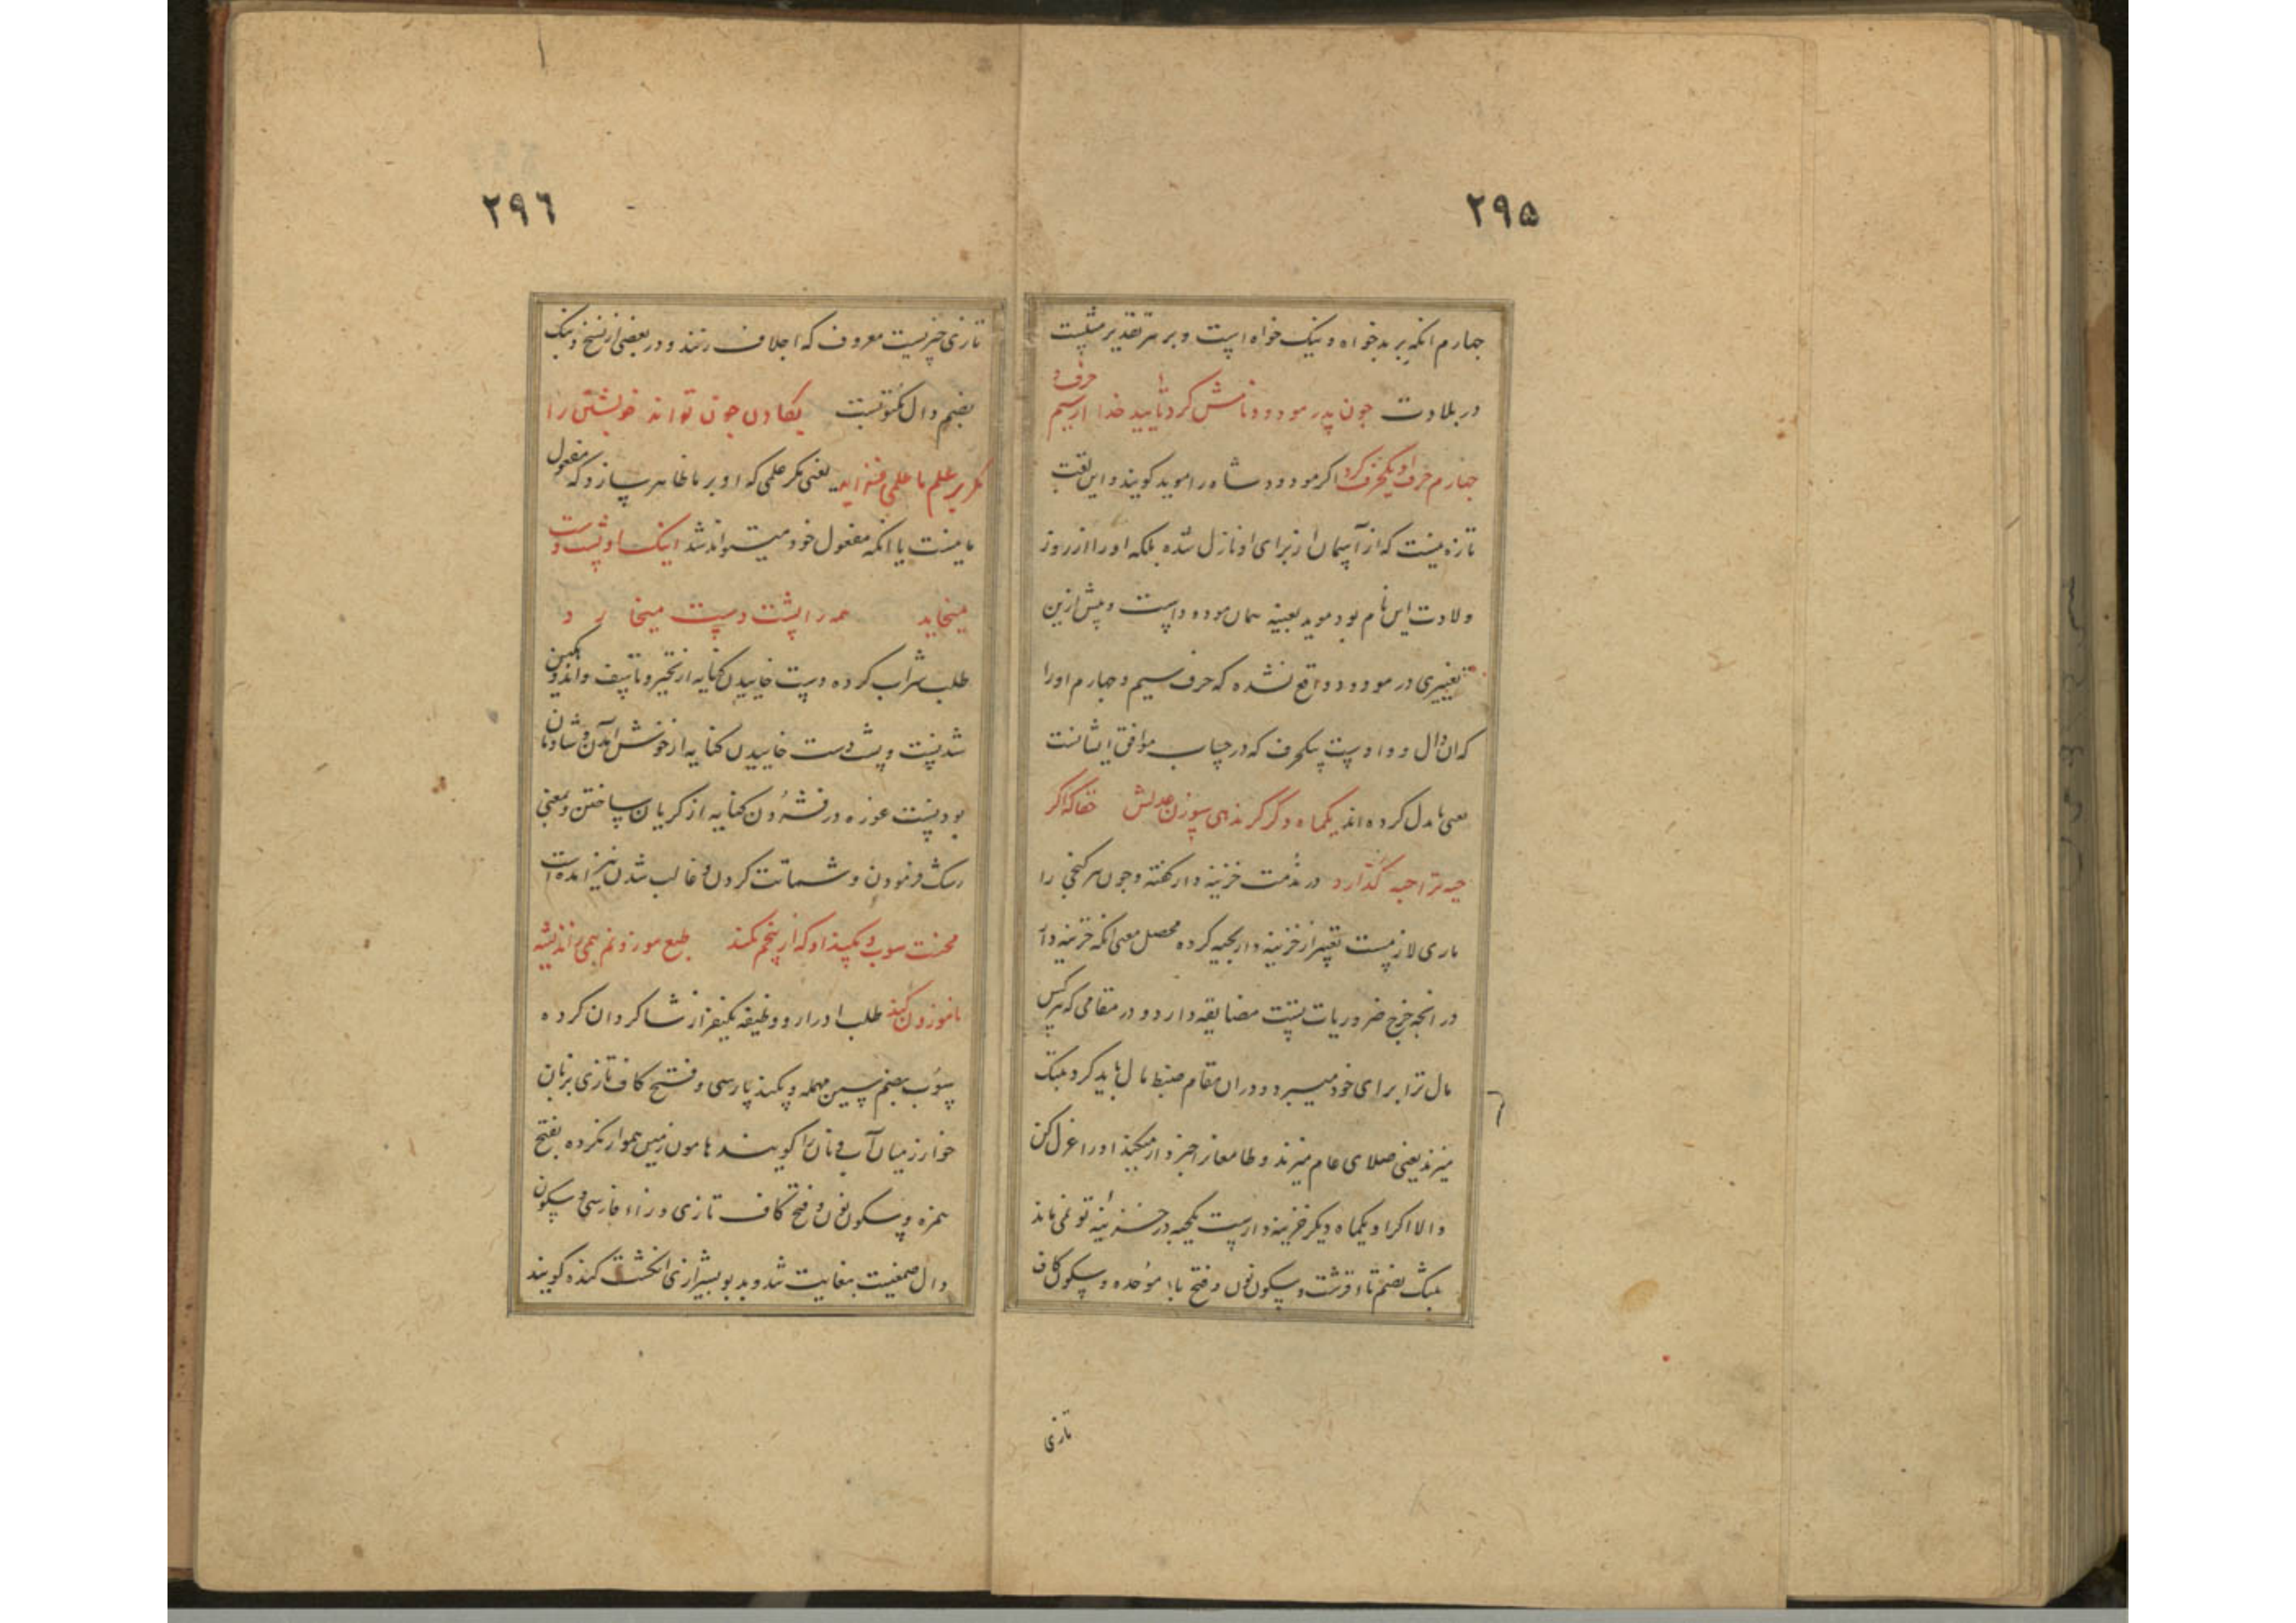 ۲۹۵
چهارم انکه بر بدخواه و نیک خواه است و بر هر تقدیر مثلیست
حرف و
در بلادت چون پدر مودود نامش کرد تایید خدا از سیم
چهارم حرف او یکحرف کرد اکر مودود شاه را موید کویند و این لقب
تازه نیست که از آسمان از برای او نازل شده بلکه او را از روز
ولادت این نام بود موید بعینه همان مودود است و پیش ازین
تغییری در مودود واقع نشده که حرف سیم و چهارم او را
که ان دال و واو است بیکحرف که در حساب موافق ایشانست
یعنی یا بدل کرده اند یکماه دکر کر ندهی سوزن عدلش حقا که اکر
حبه ترا حبه کذارد در مذمت خزینه دار کفته و چون هر کنجی را
ماری لازمست تعبیر از خزینه دار بحیه کرده محصل معنی انکه خزینه دار
در انچه خرج ضروریات تست مضایقه دارد و در مقامی که هر کس
مال ترا برای خود میبرد و دران مقام ضبط مال باید کرد تنبک
میزند یعنی صلای عام میزند و طامعان را خبردار میکند او را عزل کن
و الا اکر او یکماه دیکر خزینه دارست یکحبه در خزینه تو نمی ماند
تنبک بضم تاء قرشت و سکون نون و فتح باء موحده و سکون کاف
تازی
۲۹۶
تازی چیزیست معروف که اجلاف زنند و در بعضی از نسخ دنبک
بضم دال مکتوبست بکادن چون تواند خویشتن را
مکر بر علم ما علمی فزاید یعنی مکر علمی که او بر ما ظاهر سازد که مفعول
ما نیست یا انکه مفعول خود میتواند شد اینک او پشت دست
میخاید همه را پشت دست میخارد
طلب شراب کرده دست خاییدن کنایه از تحیر و تاسف و اندوهکین
شدنست و پشت دست خاییدن کنایه از خوش آمدن و شادمان
بودنست غوزه در فشردن کنایه از کریان ساختن و بمعنی
رشک فرمودن و شماتت کردن و غالب شدن نیز امده است
محنت سوب و پکند او که از بیخم بکند طبع موزونم همی اندیشه
ناموزون کند طلب ادرار و وظیفه یکنفر از شاکردان کرده
سوب بضم سین مهمله و پکند پارسی و فتح کاف تازی بزبان
خوارزمیان آب و نان را کویند هامون زمین هموار نکرده بفتح
همزه و سکون نون و فتح کاف تازی و زاء فارسی و سکون
دال صمغیست بغایت شد و بد بو بشیرازی انکشت کنده کویند